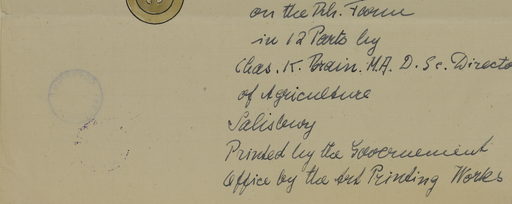 on the Rh. Farm
in 12 Parts by
Chas. K. Brain. M.A. D. Sc. Directo
of Agriculture
Salisbury
Printed by the Goovernement
Office by the Art Printing Works